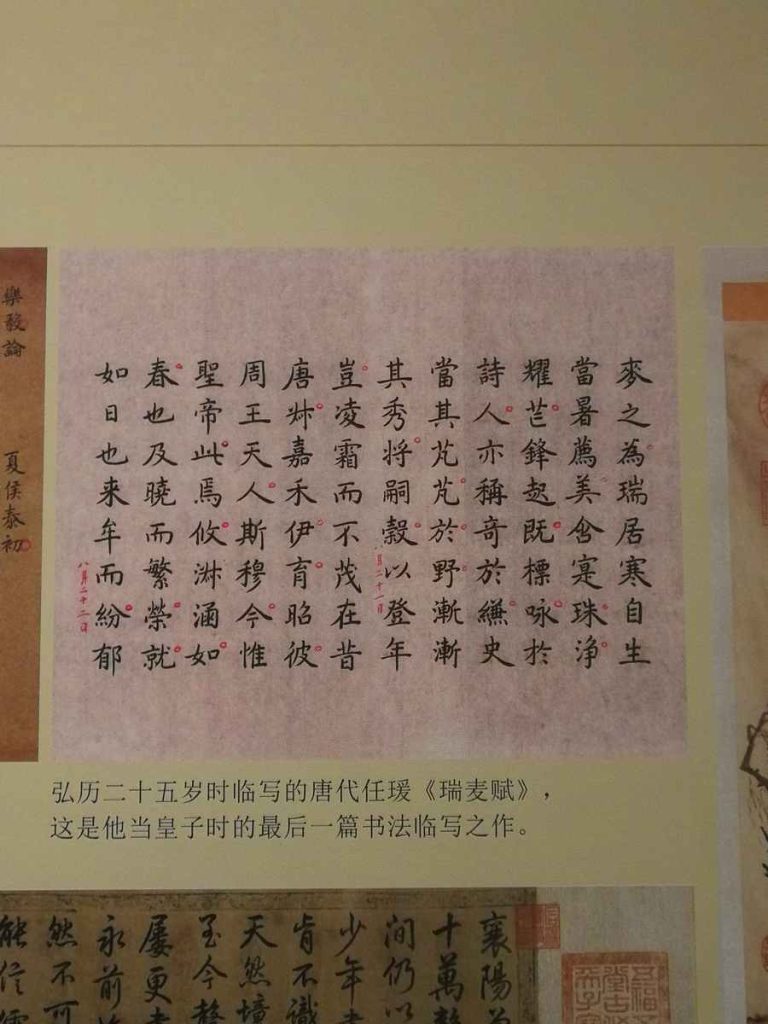 麥之為瑞居寒自生
當暑薦美含寔珠淨
耀芒鋒起既標咏於
詩人亦稱奇於縑史
當其芃芃於野漸漸
其秀将嗣穀以登年
八月二十一日
豈凌霜而不茂在昔
唐叔嘉禾伊育昭彼
周王天人斯穆今惟
聖帝此焉攸淑涵如
春也及曉而繁榮就
如日也来牟而紛郁
八月二十二日
樂毅論 夏侯泰初
弘历二十五岁时临写的唐代任瑗《瑞麦赋》，
这是他当皇子时的最后一篇书法临写之作。
襄陽
十萬
間仍以
少年
肯不識
天然境
至今
屡更
永前
然不可
能信